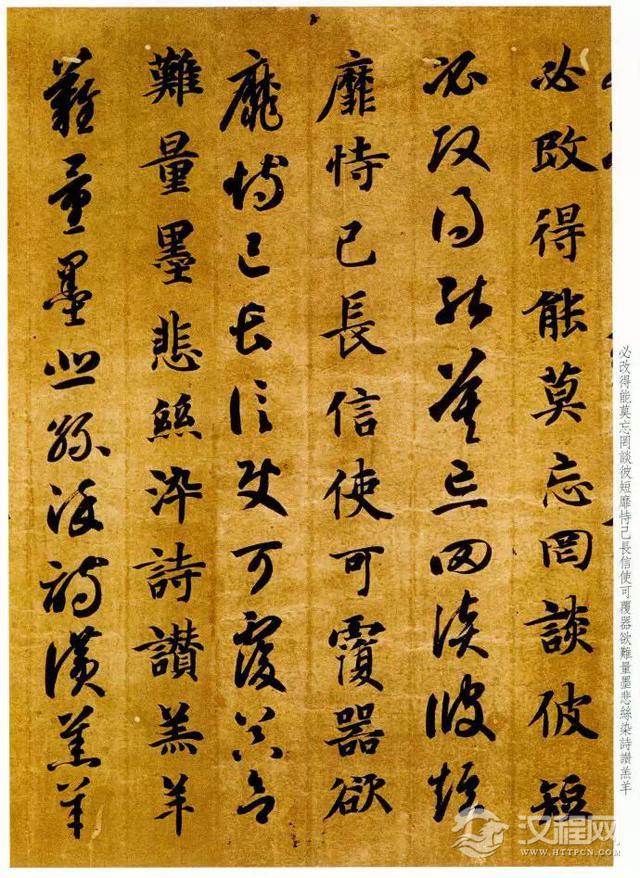 必改得能莫忘罔談彼短靡恃己長信使可覆器欲難量墨悲絲染詩讃羔羊
必改得能莫忘罔談彼短
必改得能莫忘罔談彼短
靡恃己長信使可覆器欲
靡恃己長信使可覆器欲
難量墨悲絲染詩讃羔羊
難量墨悲絲染詩讃羔羊
汉程网
WWW.HTTPCN.COM